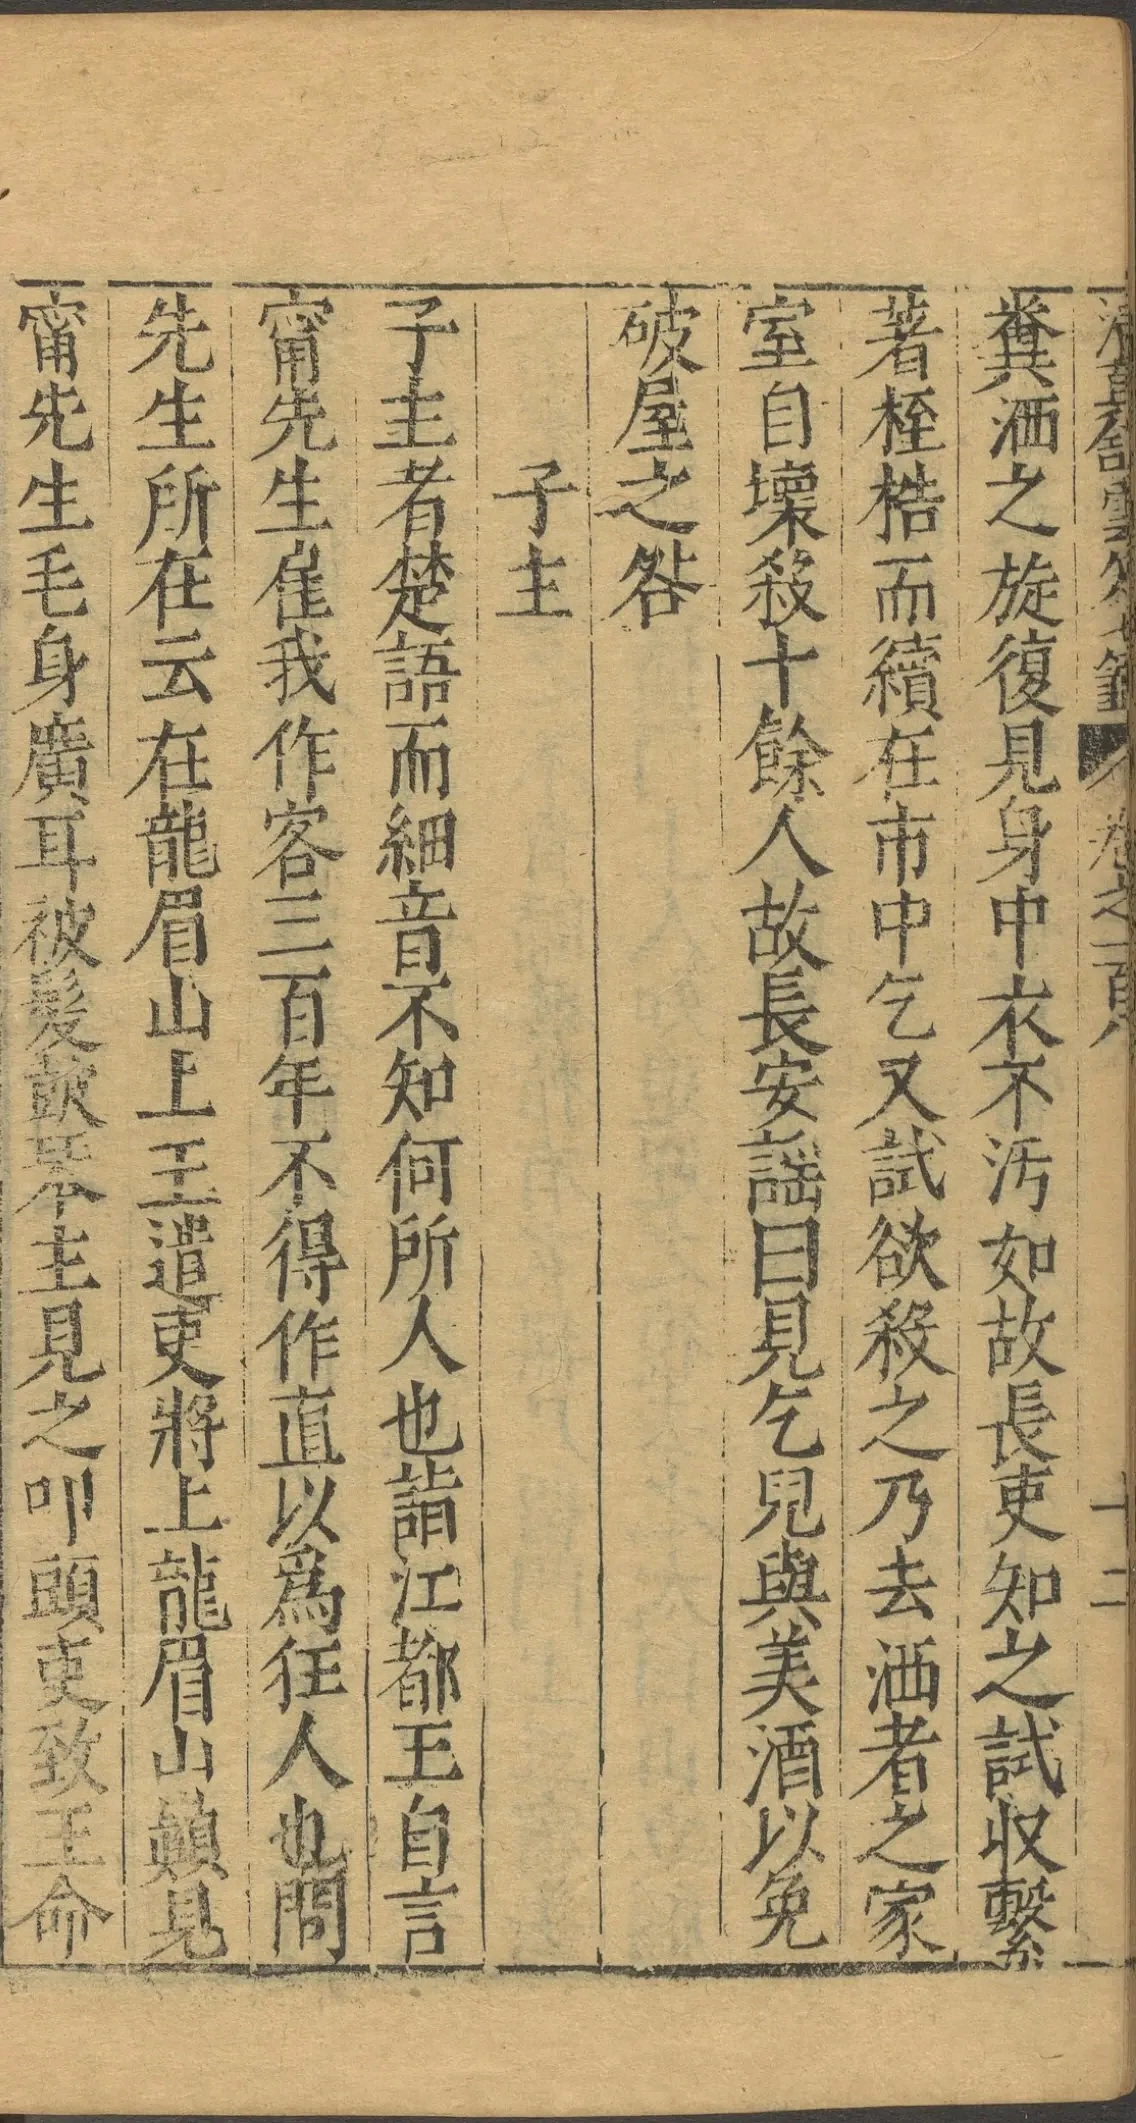 清真舘雲笈七籤 卷之一百八 十二
糞洒之旋復見身中衣不汚如故長吏知之試收繫
著桎梏而續在市中乞又試欲殺之乃去洒者之家
室自壞殺十餘人故長安謡曰見乞兒與美酒以免
破屋之咎
子主
子主者楚語而細音不知何所人也詣江都王自言
甯先生雇我作客三百年不得作直以爲狂人也問
先生所在云在龍眉山上王遣吏將上龍眉山巔見
甯先生毛身廣耳被髮鼓琴主見之叩頭吏致王命